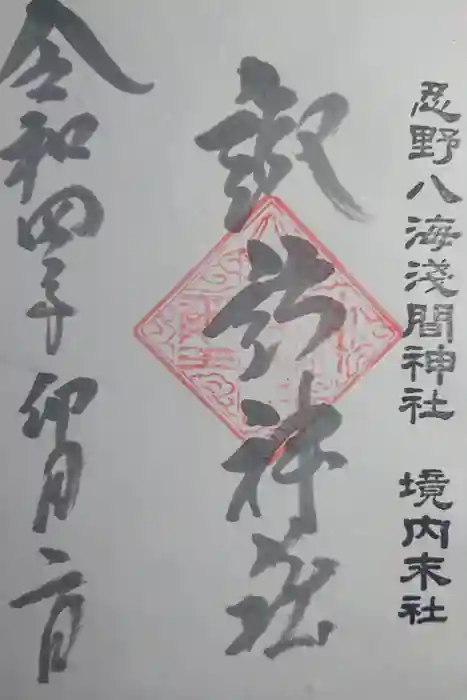 忍野八海淺間神社 境内末社
諏訪神社
令和四年 卯月 二日